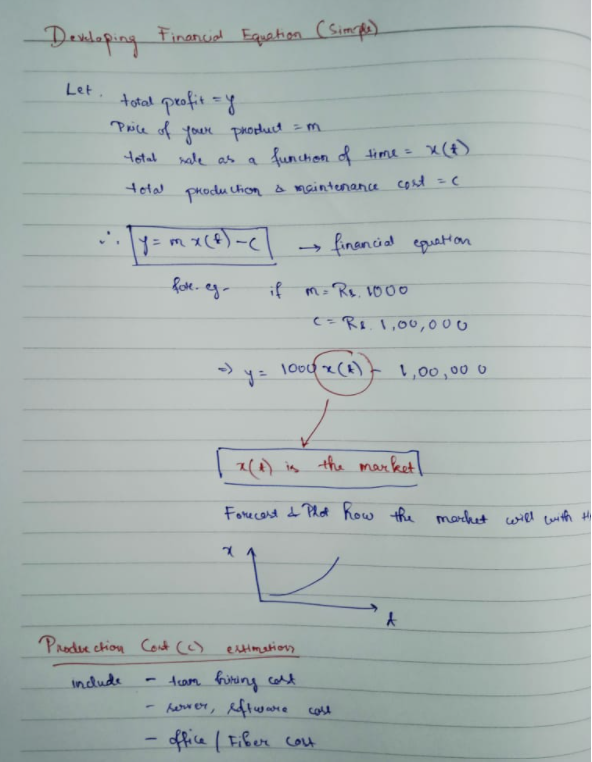 Developing Financial Equation (Simple)
Let. total profit = y
Price of your product = m
total sale as a function of time = x(t)
total production & maintenance cost = c
∴ y = m x(t) - c → financial equation
for-eg- if m = Rs. 1000
c = Rs. 1,00,000
⇒ y = 1000 x(t) - 1,00,000
x(t) is the market
Forecast & Plot how the market will with
x
t
Production Cost (c) estimation
include - team hiring cost
- server, software cost
- office / Fiber cost